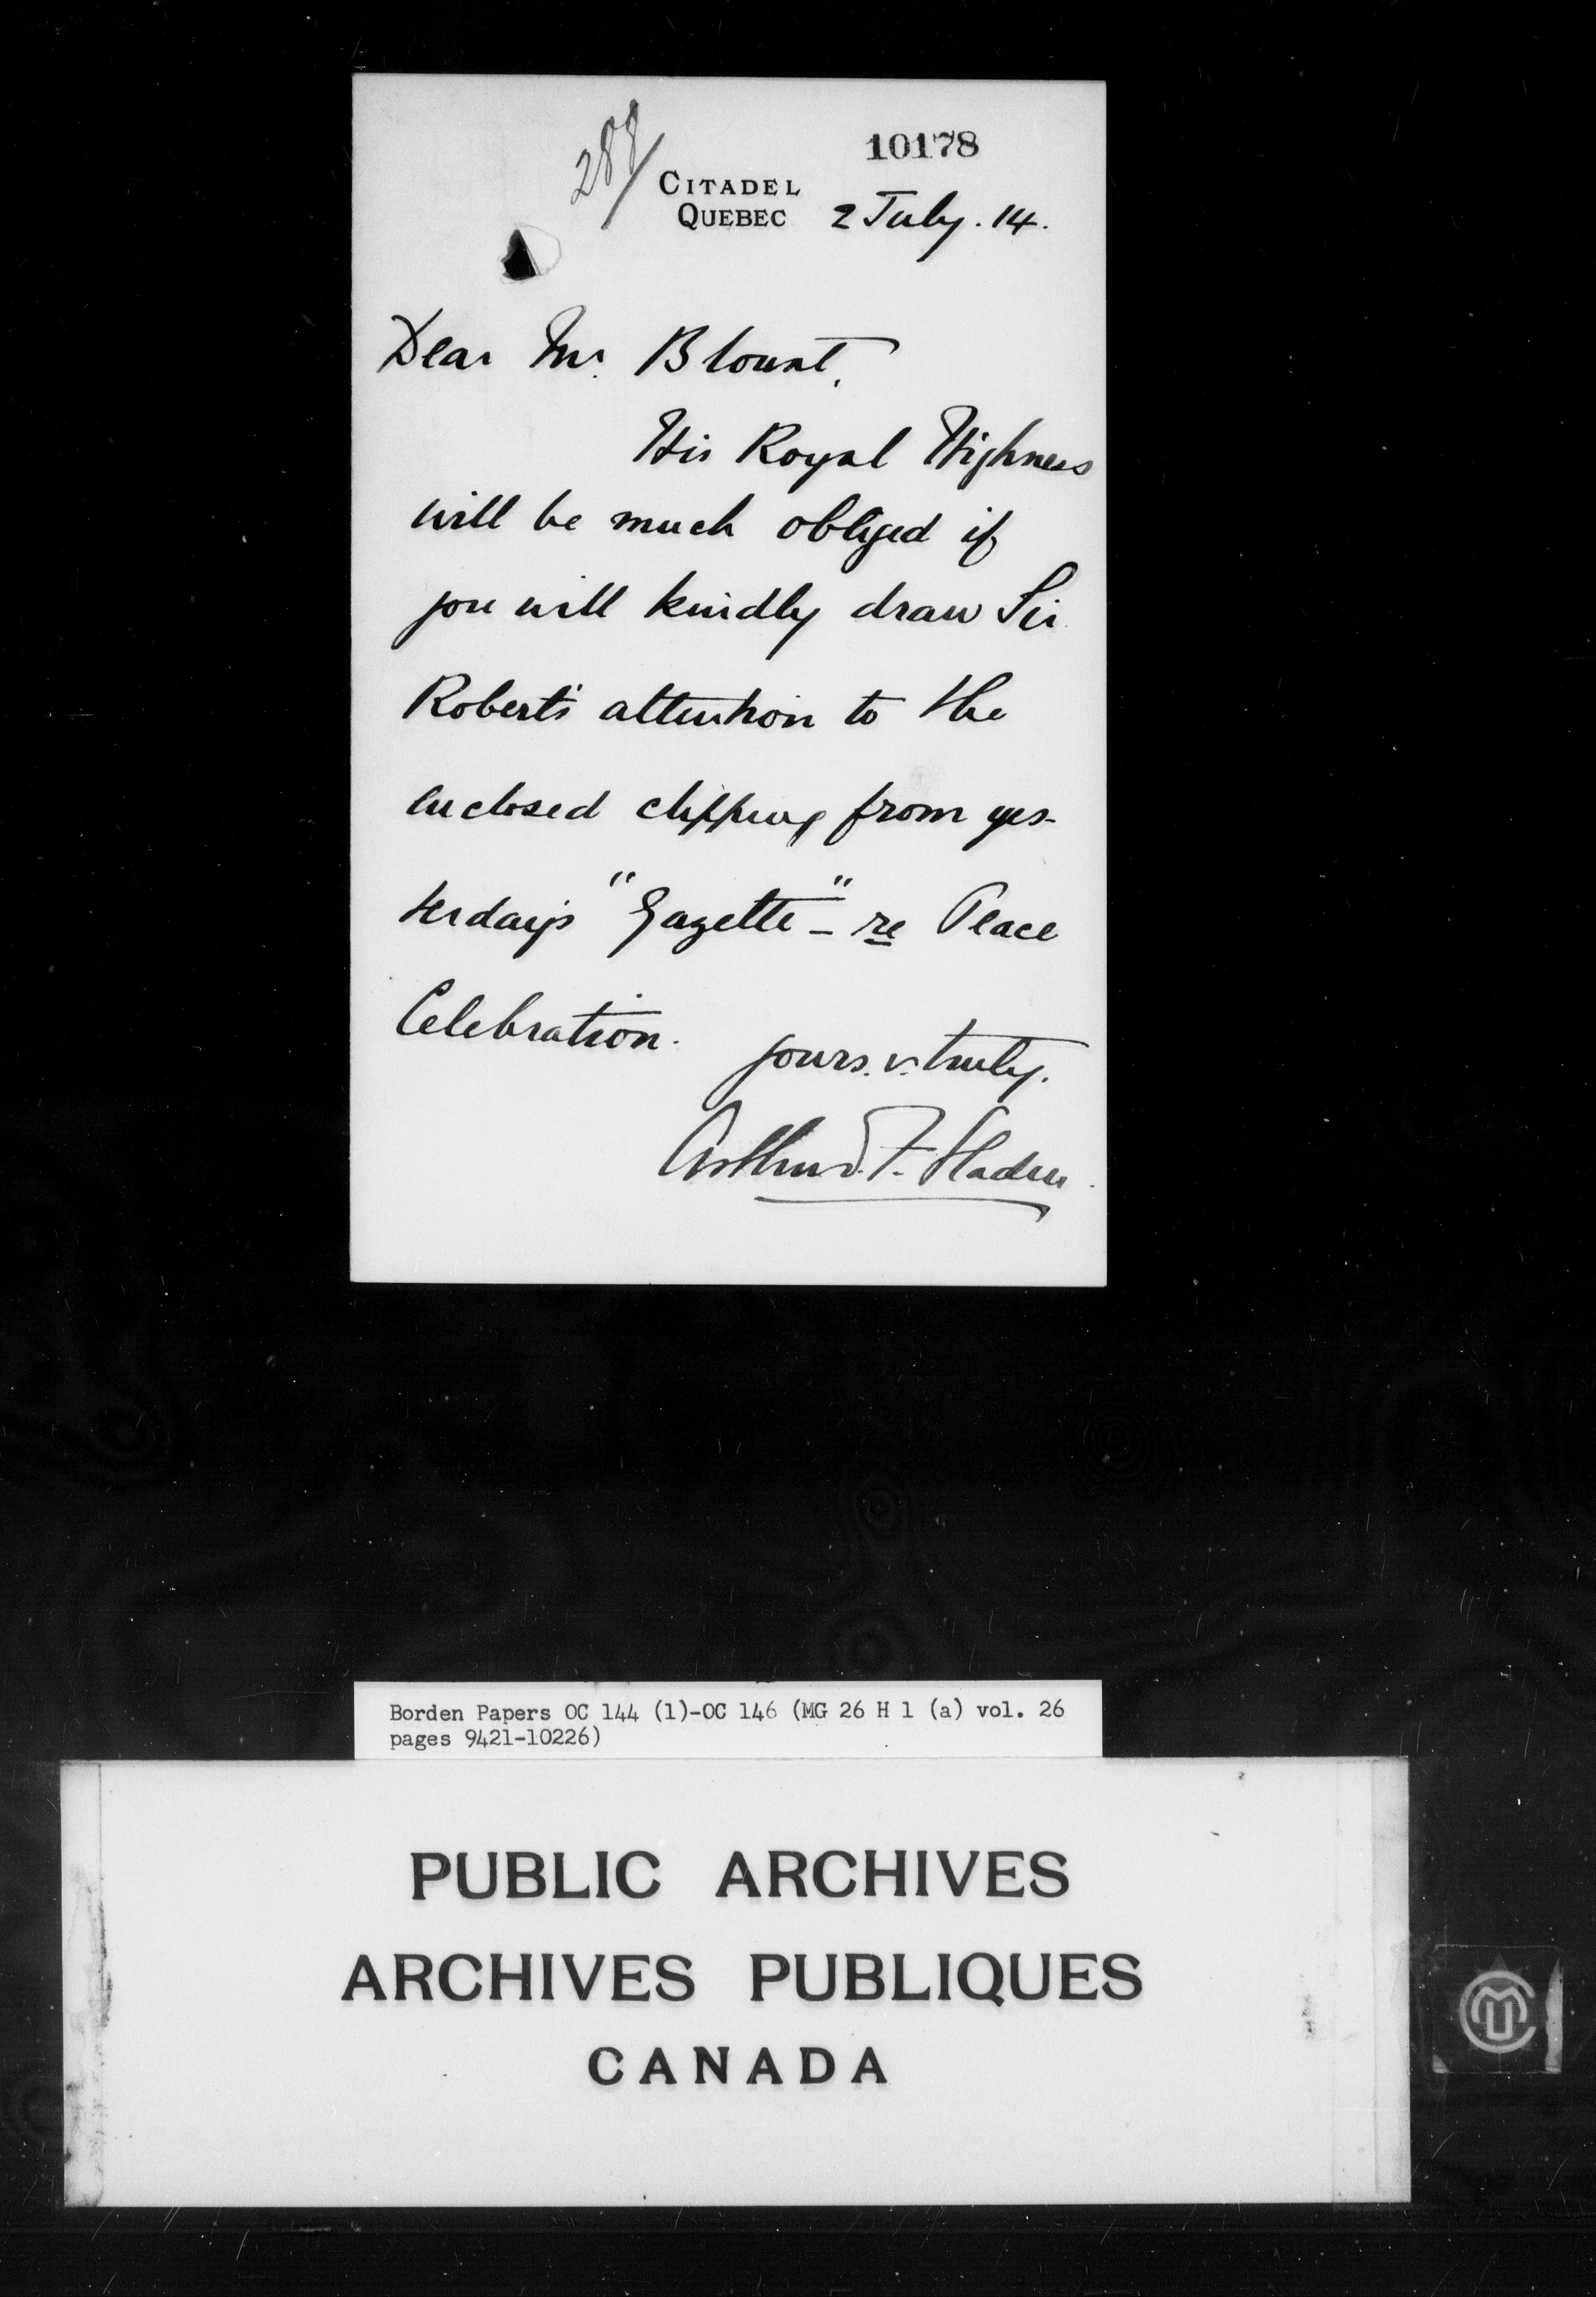 288/
10178
CITADEL
QUEBEC 2 July. 14.
Dear Mr. Blount,
His Royal Highness
will be much obliged if
you will kindly draw Sir
Robert's attention to the
enclosed clipping from yes-
terday's "Gazette" - re Peace
Celebration.
yours. v. truly.
Arthur. F. Sladen.
Borden Papers OC 144 (1)-OC 146 (MG 26 H 1 (a) vol. 26
pages 9421-10226)
PUBLIC ARCHIVES
ARCHIVES PUBLIQUES
CANADA